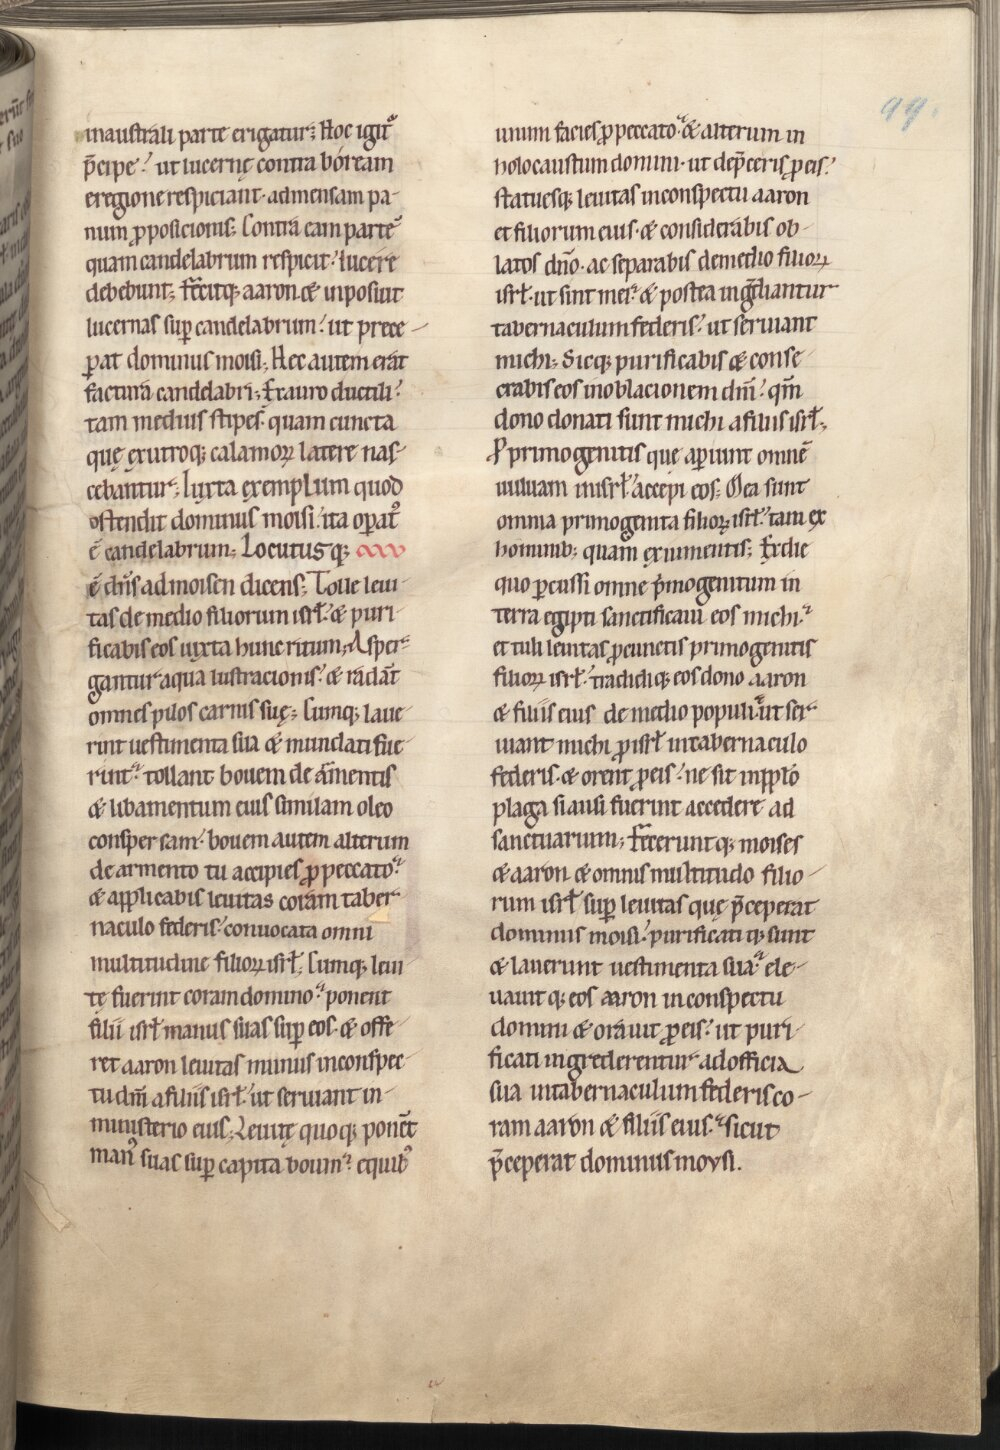 99.
inaustrali parte erigatur; Hoc igit᷑
p̄cipe ut lucernę contra boream
eregione respiciant· admensam pa-
num ꝓposicionis; Contra eam partē
quam candelabrum respicit lucere
debebunt; Fecitqꝫ aaron· & inposuit
lucernas suꝑ candelabrum ut prece-
ꝑat dominus moisi; Hec autem erat
factura candelabri; Ex auro ductili
tam medius stipes· quam cuncta
quę exutroqꝫ calamoꝝ latere nas-
cebantur; Iuxta exemplum quod
ostendit dominus moisi ita oꝑat᷑
ē candelabrum; Locutusqꝫ
ē dn̄s admoisen dicens; Tolle leui-
tas de medio filiorum isrł· & puri-
ficabis eos iuxta hunc ritum; Asper-
gantur aqua lustracionis· & radant
omnes pilos carnis suę; Cumqꝫ laue-
rint uestimenta sua & mundati fue-
rint· tollant bouem de armentis
& libamentum eius similam oleo
conspersam· bouem autem alterum
de armento tu accipies ꝓ peccato·
& applicabis leuitas coram taber-
naculo federis· conuocata omni
multitudine filioꝝ isrł; Cumqꝫ leui-
tę fuerint coram domino· ponent
filii isrł manus suas suꝑ eos· & offe-
ret aaron leuitas munus inconspec-
tu dn̄i afiliis isrł· ut seruiant in-
ministerio eius; Leuitę quoqꝫ ponēt
manꝰ suas suꝑ capita boum· equibꝰ
unum facies ꝓ peccato· & alterum in
holocaustum domini· ut dep̄ceris ꝓ eis·
statuesqꝫ leuitas inconspectu aaron
et filiorum eius· & considerabis ob-
latos dn̄o· ac separabis demedio filioꝝ
isrł· ut sint mei· & postea ingrediantur
tabernaculum federis· ut seruiant
michi; Sicqꝫ purificabis & conse-
crabis eos inoblacionem dn̄i· qm̄
dono donati sunt michi afiliis isrł;
Pro primogenitis que aꝑiunt omnē
uuluam inisrł accepi eos; Mea sunt
omnia primogenita filioꝝ isrł· tam ex
hominibꝫ quam exiumentis; Ex die
quo ꝑcussi omne pͥmogenitum in
terra egipti sanctificaui eos michi·
et tuli leuitas ꝓ cunctis primogenitis
filioꝝ isrł· tradidiqꝫ eos dono aaron
& filiis eius de medio populi· ut ser-
uiant michi ꝓ isrł intabernaculo
federis· & orent ꝓ eis· ne sit inpp̄lo
plaga si ausi fuerint accedere ad
sanctuarium; Feceruntqꝫ moises
& aaron & omnis multitudo filio-
rum isrł suꝑ leuitas quę p̄ceperat
dominus moisi· purificatiqꝫ sunt
& lauerunt uestimenta sua· ele-
uauitqꝫ eos aaron inconspectu
domini & orauit ꝓ eis· ut puri-
ficati ingrederentur adofficia
sua intabernaculum federis co-
ram aaron & filiis eius· sicut
p̄ceperat dominus moysi.